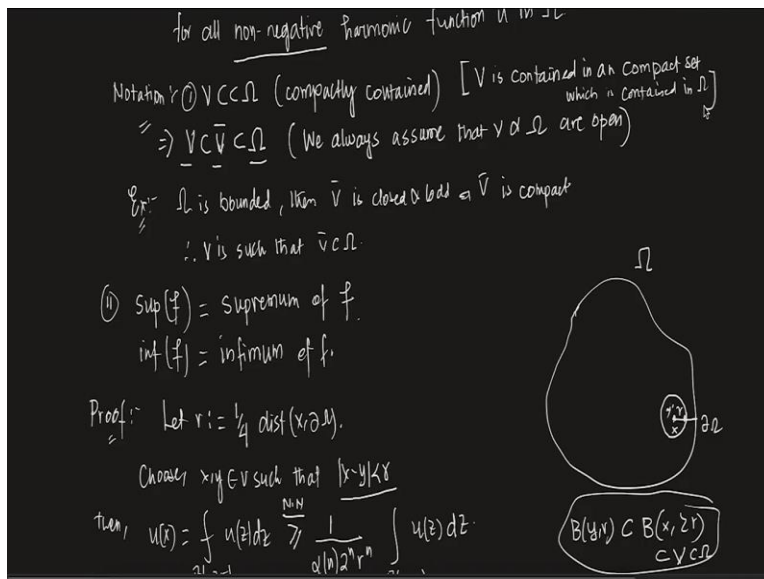 for all non-negative harmonic function u in Ω
Notation :- (i) V ⊂⊂ Ω (compactly contained) [V is contained in an compact set
which is contained in Ω]
=> V ⊂ V̄ ⊂ Ω (We always assume that V & Ω are open)
Ex:- Ω is bounded, then V̄ is closed & bdd => V̄ is compact
∴ V is such that V̄ ⊂ Ω.
(ii) sup(f) = supremum of f.
inf(f) = infimum of f.
Ω
Proof:- Let r := 1/4 dist(x, ∂Ω).
∂Ω
x
Choose x,y ∈ V such that |x-y|<r
then, u(x) = ⨍ u(z)dz ≥ 1/(α(n)2ⁿrⁿ) ∫ u(z) dz.
N.N
B(y,r) ⊂ B(x,2r)
⊂ V ⊂ Ω